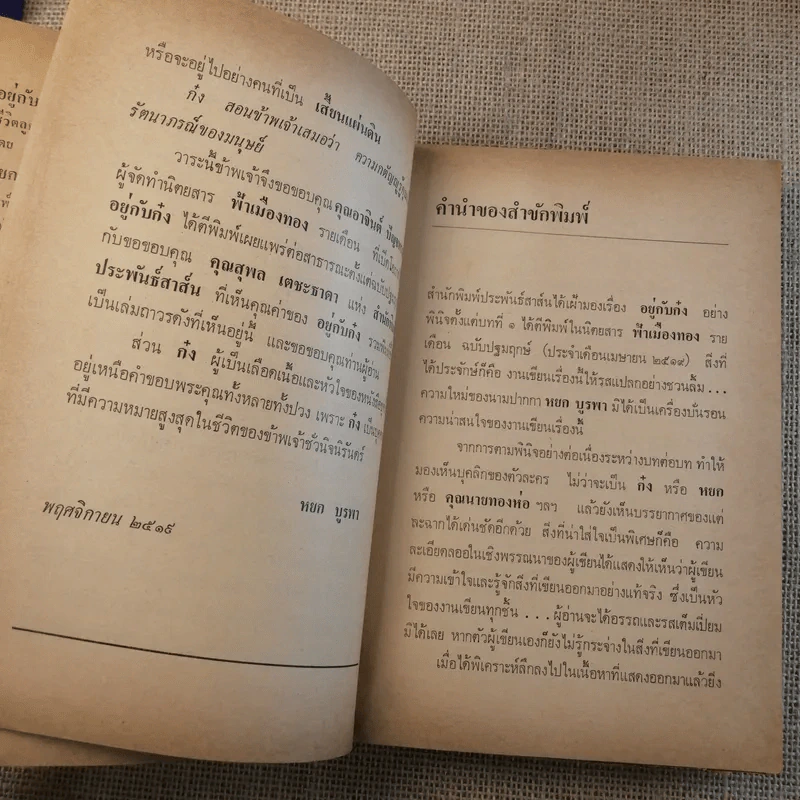 อยู่กับ
หรือจะอยู่ไปอย่างคนที่เป็น เสี้ยนแผ่นดิน
ก๋ง สอนข้าพเจ้าเสมอว่า ความกตัญญูรู้คุณ
รัตนาภรณ์ของมนุษย์
วาระนี้ข้าพเจ้าจึงขอขอบคุณ คุณอาจินต์
ผู้จัดทำนิตยสาร ฟ้าเมืองทอง รายเดือน ที่เปิด
อยู่กับก๋ง ได้ตีพิมพ์เผยแพร่ต่อสาธารณะตั้งแต่ฉบับ
กับขอขอบคุณ คุณสุพล เตชะธาดา แห่ง สำนัก
ประพันธ์สาส์น ที่เห็นคุณค่าของ อยู่กับก๋ง รวม
เป็นเล่มถาวรดังที่เห็นอยู่นี้ และขอขอบคุณท่านผู้อ่าน
ส่วน ก๋ง ผู้เป็นเลือดเนื้อและหัวใจของหนังสือ
อยู่เหนือคำขอบพระคุณทั้งหลายทั้งปวง เพราะ ก๋ง
ที่มีความหมายสูงสุดในชีวิตของข้าพเจ้าชั่วนิจนิรันดร์
หยก บูรพา
พฤศจิกายน ๒๕๑๙
คำนำของสำนักพิมพ์
สำนักพิมพ์ประพันธ์สาส์นได้เฝ้ามองเรื่อง อยู่กับก๋ง อย่าง
พินิจตั้งแต่บทที่ ๑ ได้ตีพิมพ์ในนิตยสาร ฟ้าเมืองทอง ราย
เดือน ฉบับปฐมฤกษ์ (ประจำเดือนเมษายน ๒๕๑๙) สิ่งที่
ได้ประจักษ์ก็คือ งานเขียนเรื่องนี้ให้รสแปลกอย่างชวนลิ้ม ...
ความใหม่ของนามปากกา หยก บูรพา มิได้เป็นเครื่องบั่นรอน
ความน่าสนใจของงานเขียนเรื่องนี้
จากการตามพินิจอย่างต่อเนื่องระหว่างบทต่อบท ทำให้
มองเห็นบุคลิกของตัวละคร ไม่ว่าจะเป็น ก๋ง หรือ หยก
หรือ คุณนายทองห่อ ฯลฯ แล้วยังเห็นบรรยากาศของแต่
ละฉากได้เด่นชัดอีกด้วย สิ่งที่น่าใส่ใจเป็นพิเศษก็คือ ความ
ละเอียดลออในเชิงพรรณนาของผู้เขียนได้แสดงให้เห็นว่าผู้เขียน
มีความเข้าใจและรู้จักสิ่งที่เขียนออกมาอย่างแท้จริง ซึ่งเป็นหัว
ใจของงานเขียนทุกชิ้น ... ผู้อ่านจะได้อรรถและรสเต็มเปี่ยม
มิได้เลย หากตัวผู้เขียนเองก็ยังไม่รู้กระจ่างในสิ่งที่เขียนออกมา
เมื่อได้พิเคราะห์ลึกลงไปในเนื้อหาที่แสดงออกมาแล้วยิ่ง